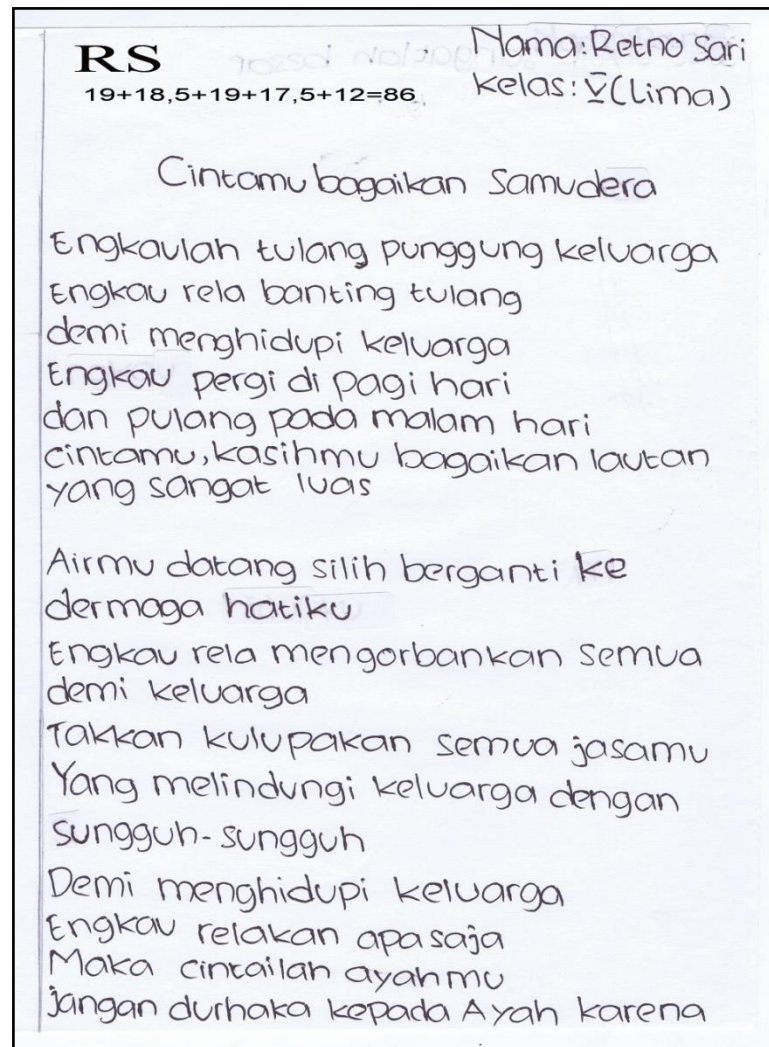 RS
19+18,5+19+17,5+12=86
Nama: Retno Sari
kelas: V (Lima)
Cintamu bagaikan Samudera
Engkaulah tulang punggung keluarga
Engkau rela banting tulang
demi menghidupi keluarga
Engkau pergi di pagi hari
dan pulang pada malam hari
cintamu, kasihmu bagaikan lautan
yang sangat luas
Airmu datang silih berganti ke
dermaga hatiku
Engkau rela mengorbankan semua
demi keluarga
Takkan kulupakan semua jasamu
Yang melindungi keluarga dengan
sungguh-sungguh
Demi menghidupi keluarga
Engkau relakan apa saja
Maka cintailah ayahmu
jangan durhaka kepada Ayah karena